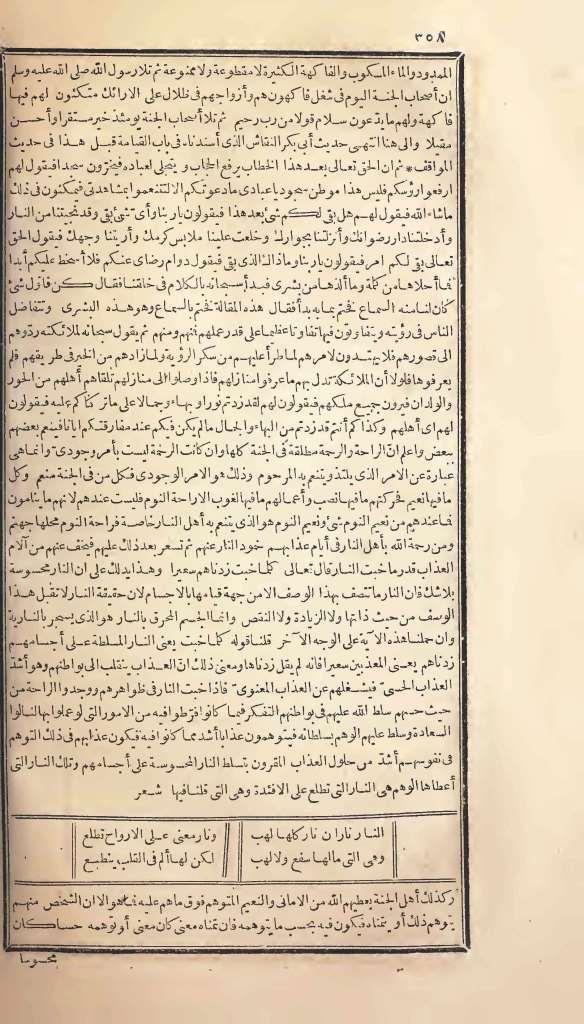 ٣٥٨
الممدود والماء المسكوب والفاكهة الكثيرة لا مقطوعة ولا ممنوعة ثم تلا رسول الله صلى الله عليه وسلم
ان أصحاب الجنة اليوم في شغل فاكهون هم وأزواجهم في ظلال على الارائك متكئون لهم فيها
فاكهة ولهم ما يدعون سلام قولا من رب رحيم ثم تلا أصحاب الجنة يومئذ خير مستقرا وأحسن
مقيلا والى هنا انتهى حديث أبي بكر النقاش الذي أسندناه في باب القيامة قبل هذا في حديث
المواقف * ثم ان الحق تعالى بعد هذا الخطاب يرفع الحجاب ويتجلى لعباده فيخرون سجدا فيقول لهم
ارفعوا رؤسكم فليس هذا موطن سجود يا عبادي ما دعوتكم الا لتنعموا بمشاهدتي فيمكثون في ذلك
ما شاء الله فيقول لهم هل بقي لكم شئ بعد هذا فيقولون يا ربنا وأي شئ بقي وقد نجيتنا من النار
وأدخلتنا دار رضوانك وأنزلتنا بجوارك وخلعت علينا ملابس كرمك وأريتنا وجهك فيقول الحق
تعالى بقي لكم امر فيقولون يا ربنا وما ذاك الذي بقي فيقول دوام رضاي عنكم فلا أسخط عليكم أبدا
فما أحلاها من كلمة وما ألذها من بشرى فبدأ سبحانه بالكلام في خلقنا فقال كن فأول شئ
كان لنا منه السماع فختم بما به بدأ فقال هذه المقالة فختم بالسماع وهو هذه البشرى وتتفاضل
الناس في رؤيته ويتفاوتون فيها تفاوتا عظيما على قدر علمهم فمنهم ومنهم ثم يقول سبحانه لملائكته ردوهم
الى قصورهم فلا يهتدون لامرهم لما طرأ عليهم من سكر الرؤية ولما زادهم من الخير في طريقهم فلم
يعرفوها فلولا أن الملائكة تدل بهم ما عرفوا منازلهم فاذا وصلوا الى منازلهم تلقاهم أهلهم من الحور
والولدان فيرون جميع ملكهم فيقولون لهم لقد زدتم نورا وبهاء وجمالا على ما تركناكم عليه فيقولون
لهم اى أهلهم وكذاكم أنتم قد زدتم من البهاء والجمال ما لم يكن فيكم عند مفارقتكم ايانا فينعم بعضهم
ببعض واعلم ان الراحة والرحمة مطلقة في الجنة كلها وان كانت الرحمة ليست بأمر وجودي وانما هي
عبارة عن الامر الذي يلتذ ويتنعم به المرحوم وذلك هو الامر الوجودي فكل من في الجنة منعم وكل
ما فيها نعيم فحركتهم ما فيها نصب وأعمالهم ما فيها لغوب الا راحة النوم فليست عندهم لانهم ما ينامون
فما عندهم من نعيم النوم شئ ونعيم النوم هو الذي يتنعم به أهل النار خاصة فراحة النوم محلها جهنم
ومن رحمة الله بأهل النار في أيام عذابهم خمود النار عنهم ثم تسعر بعد ذلك عليهم فيخفف عنهم من آلام
العذاب قدر ما خبت النار قال تعالى كلما خبت زدناهم سعيرا وهذا يدلك على ان النار محسوسة
بلا شك فان النار ما تتصف بهذا الوصف الا من جهة قيامها بالاجسام لان حقيقة النار لا تقبل هذا
الوصف من حيث ذاتها ولا الزيادة ولا النقص وانما الجسم المحرق بالنار هو الذي يسجر بالنارية
وان حملنا هذه الآية على الوجه الآخر قلنا قوله كلما خبت يعني النار المسلطة على أجسامهم
زدناهم يعني المعذبين سعيرا فانه لم يقل زدناها ومعنى ذلك ان العذاب ينقلب الى بواطنهم وهو أشد
العذاب الحسي فيشغلهم عن العذاب المعنوي فاذا خبت النار في ظواهرهم ووجدوا الراحة من
حيث حسهم سلط الله عليهم في بواطنهم التفكر فيما كانوا فرطوا فيه من الامور التي لو عملوا بها لنالوا
السعادة وسلط عليهم الوهم بسلطانه فيتوهمون عذابا أشد مما كانوا فيه فيكون عذابهم في ذلك التوهم
في نفوسهم أشد من حلول العذاب المقرون بتسلط النار المحسوسة على أجسامهم وتلك النار التي
أعطاها الوهم هي النار التي تطلع على الافئدة وهي التي قلنا فيها شعر
النار ناران نار كلها لهب ونار معنى على الارواح تطلع
وهي التي مالها سفع ولا لهب لكن لها ألم في القلب ينطبع
وكذلك أهل الجنة يعطيهم الله من الاماني والنعيم المتوهم فوق ما هم عليه فما هو الا ان الشخص منهم
يتوهم ذلك أو يتمناه فيكون فيه بحسب ما يتوهمه فان تمناه معنى كان معنى أو توهمه حسا كان
محسوسا